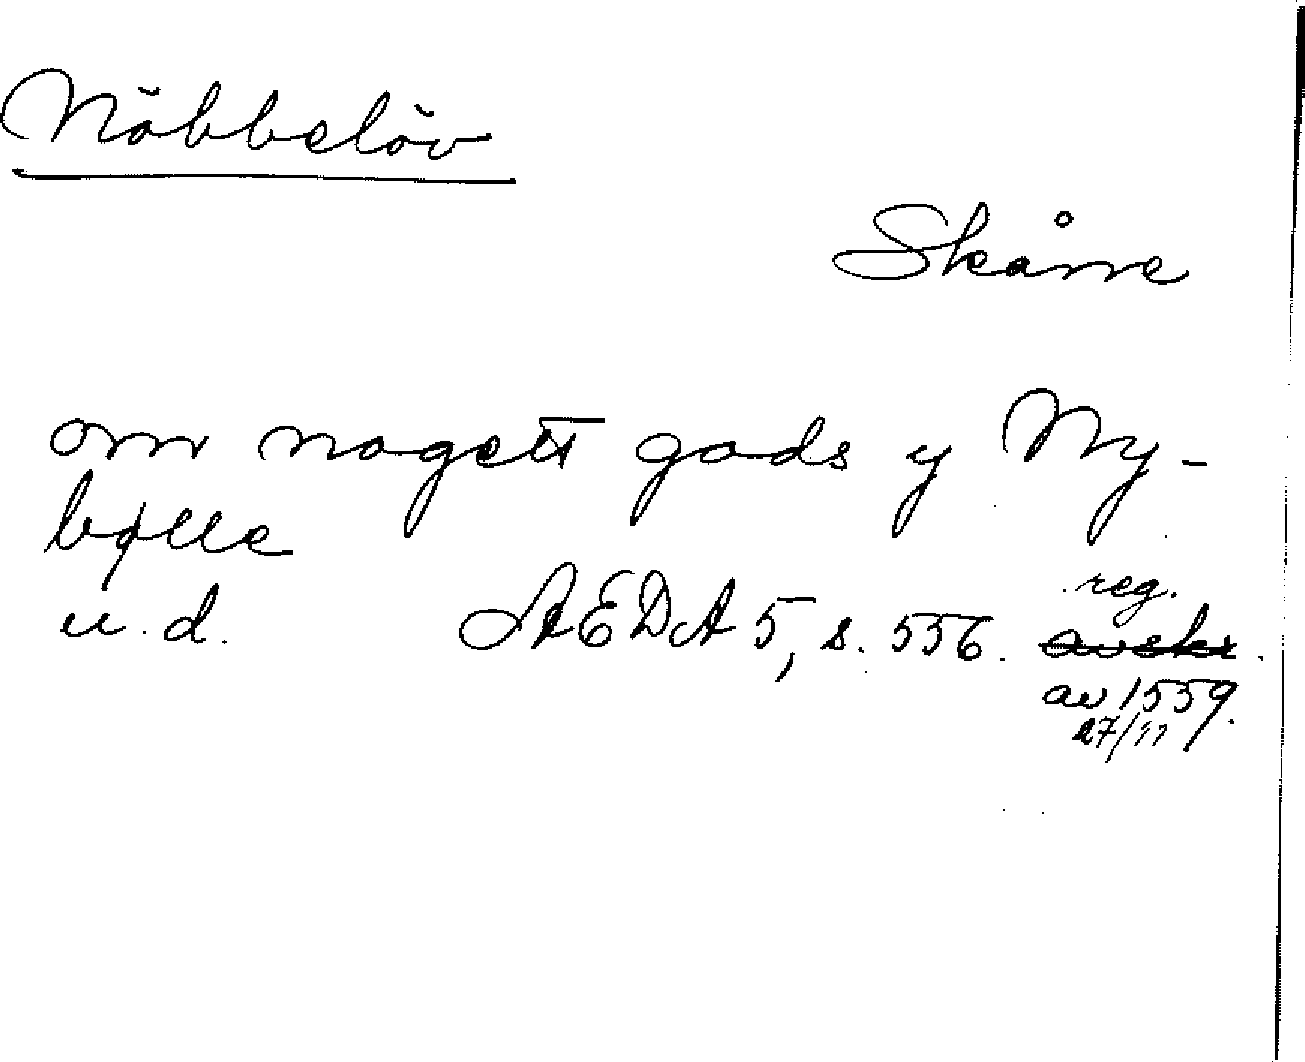 Nöbbelöv
Skåne
om nogett gods y Ny-
bølle
u.d. ÆAEDA 5, s. 556. reg.
avskr.
av 1559.
27/11